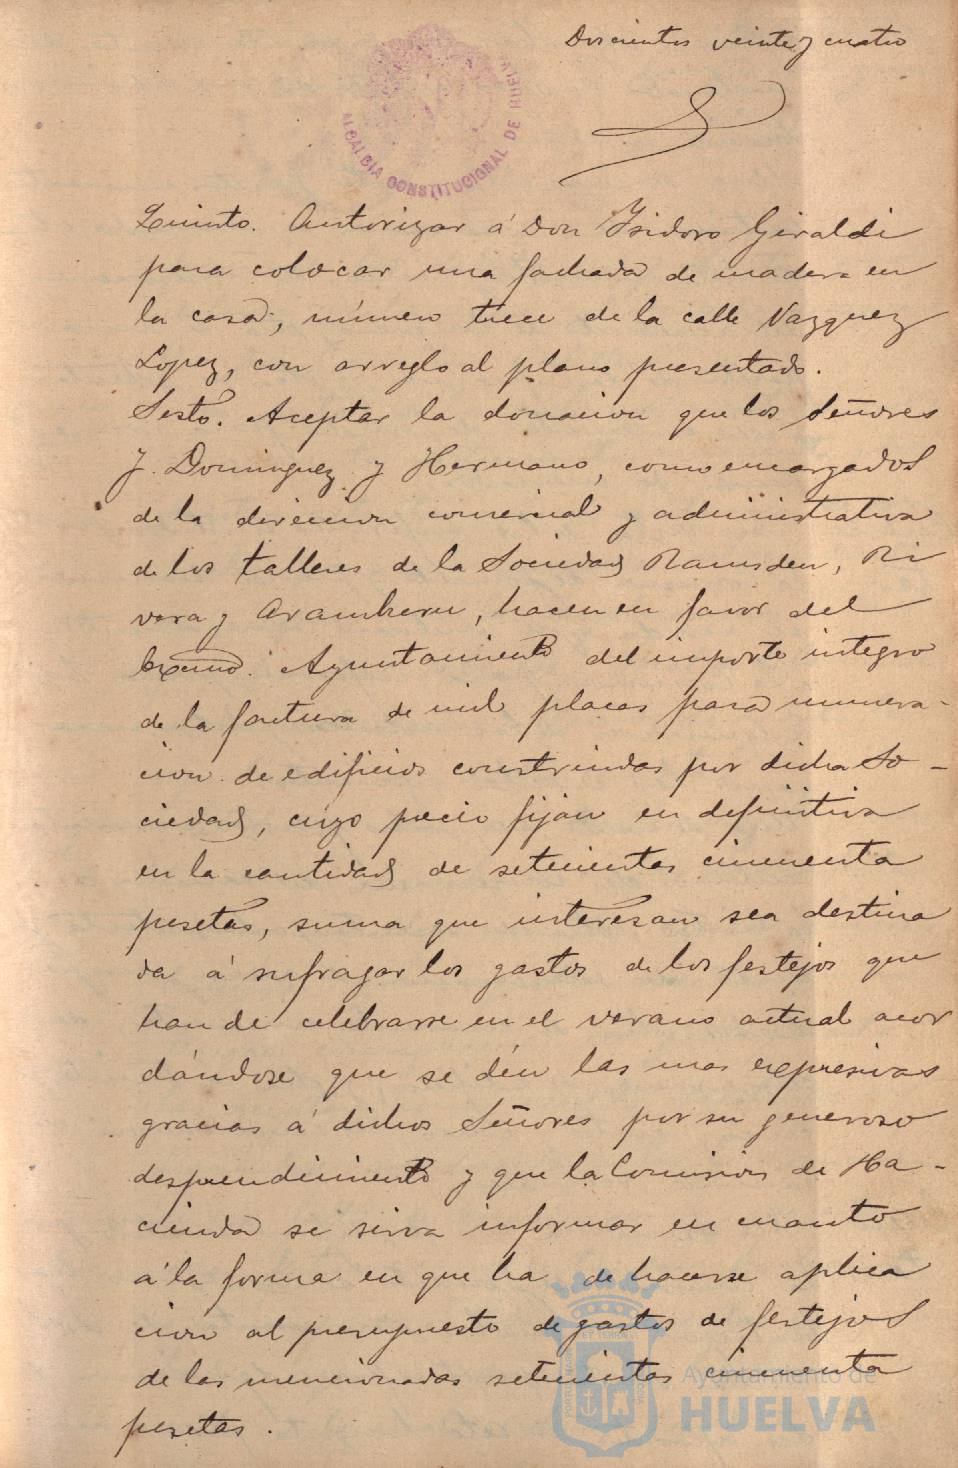 Doscientos veinte y cuatro
ALCALDIA CONSTITUCIONAL DE HUELVA
Quinto. Autorizar á Don Isidoro Giraldi
para colocar una fachada de madera en
la casa, número trece de la calle Vazquez
Lopez, con arreglo al plano presentado.
Sesto. Aceptar la donacion que los Señores
J. Dominguez y Hermano, como encargados
de la direccion comercial y administrativa
de los talleres de la Sociedad Ramsden, Ri
vera y Aramberu, hacen en favor del
Excmo. Ayuntamiento del importe integro
de la factura de mil placas para numera-
cion de edificios construidas por dicha So-
ciedad, cuyo precio fijan en definitiva
en la cantidad de setecientas cincuenta
pesetas, suma que interesan sea destina
da á sufragar los gastos de los festejos que
han de celebrarse en el verano actual acor
dándose que se dén las mas expresivas
gracias á dichos Señores por su generoso
desprendimiento y que la Comision de Ha-
cienda se sirva informar en cuanto
á la forma en que ha de hacerse aplica
cion al presupuesto de gastos de festejos
de las mencionadas setecientas cincuenta
pesetas.
Ayuntamiento de
HUELVA